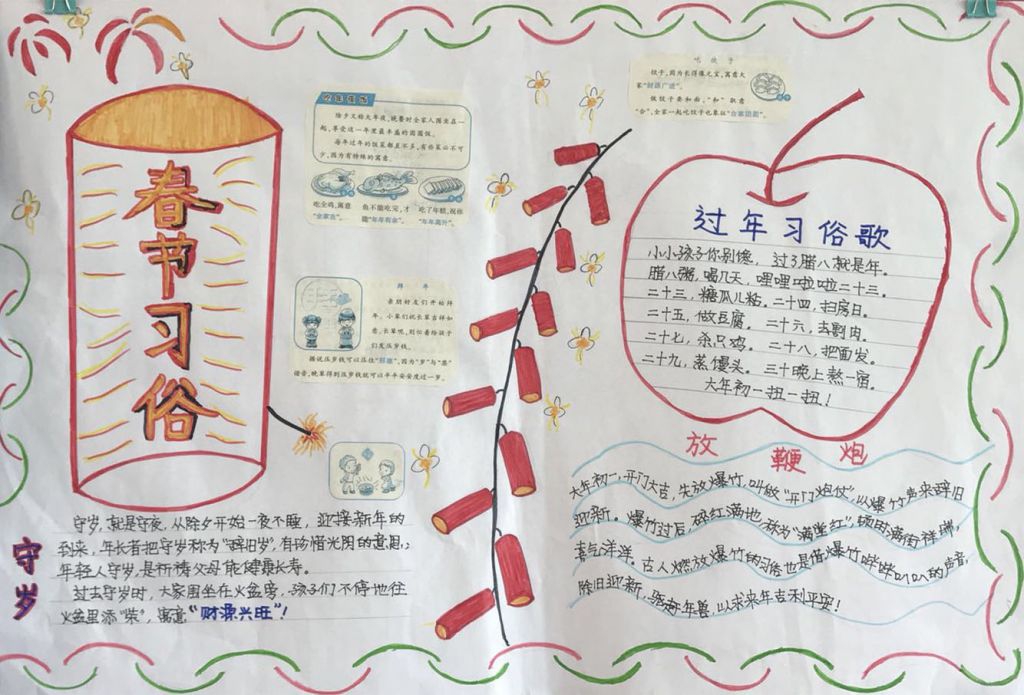 春节习俗
吃年夜饭
除夕又称大年夜,晚餐时全家人围坐在一
起,享受这一年里最丰盛的团圆饭。
每年过年的饭菜都差不多,有些菜必不可
少,因为有特殊的寓意。
吃全鸡,寓意
“全家吉”。
鱼不能吃完,才
能“年年有余”。
吃了年糕,祝你
“年年高升”。
拜年
亲朋好友们开始拜
年。小辈们祝长辈吉祥如
意,长辈呢,别忘着给孩子
们发压岁钱。
据说压岁钱可以压住“邪祟”,因为“岁”与“祟”
谐音,晚辈得到压岁钱就可以平平安安度过一岁。
守岁
守岁,就是守夜,从除夕开始一夜不睡,迎接新年的
到来,年长者把守岁称为“辞旧岁”,有珍惜光阴的意思;
年轻人守岁,是祈祷父母能健康长寿。
过去守岁时,大家围坐在火盆旁,孩子们不停地往
火盆里添“柴”,寓意“财源兴旺”!
吃饺子
饺子,因为长得像元宝,寓意大
家“财源广进”。
做饺子要和面,“和”就意
“合”,全家一起吃饺子也象征“合家团圆”。
过年习俗歌
小小孩子你别馋,过了腊八就是年。
腊八粥,喝几天,哩哩啦啦二十三。
二十三,糖瓜儿粘。二十四,扫房日。
二十五,做豆腐。二十六,去割肉。
二十七,杀只鸡。二十八,把面发。
二十九,蒸馒头。三十晚上熬一宿。
大年初一扭一扭!
放鞭炮
大年初一,开门大吉,先放爆竹,叫做“开门炮仗”,以爆竹声来辞旧
迎新。爆竹过后,碎红满地,称为“满堂红”,顿时满街祥瑞,
喜气洋洋。古人燃放爆竹的习俗也是借爆竹哔哔叭叭的声音,
除旧迎新,驱赶年兽,以求来年吉利平安!